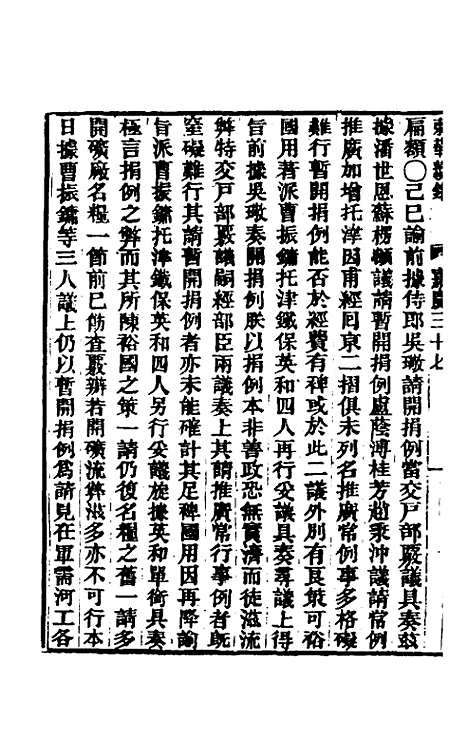 東華續錄 嘉慶三十七
扁額○己巳諭前據侍郎吳璥請開捐例當交戶部覈議具奏茲
據潘世恩蘇楞額議請暫開捐例盧蔭溥桂芳趙秉沖議請常例
推廣加增托津因甫經回京二摺俱未列名推廣常例事多格礙
難行暫開捐例能否於經費有裨或於此二議外別有良策可裕
國用著派曹振鏞托津鐵保英和四人再行妥議具奏尋議上得
旨前據吳璥奏開捐例朕以捐例本非善政恐無實濟而徒滋流
弊特交戶部覈議嗣經部臣兩議奏上其請推廣常行事例者既
窒礙難行其請暫開捐例者亦未能確計其足裨國用因再降諭
旨派曹振鏞托津鐵保英和四人另行妥議旋據英和單銜具奏
極言捐例之弊而其所陳裕國之策一請仍復名糧之舊一請多
開礦廠名糧一節前已飭查覈辦若開礦流弊滋多亦不可行本
日據曹振鏞等三人議上仍以暫開捐例爲請見在軍需河工各